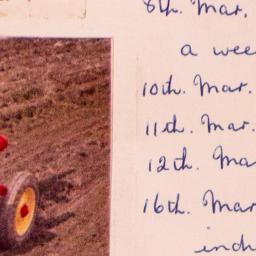 8th. Mar.
a wee
10th. Mar.
11th. Mar.
12th. Ma
16th. Mar
ind